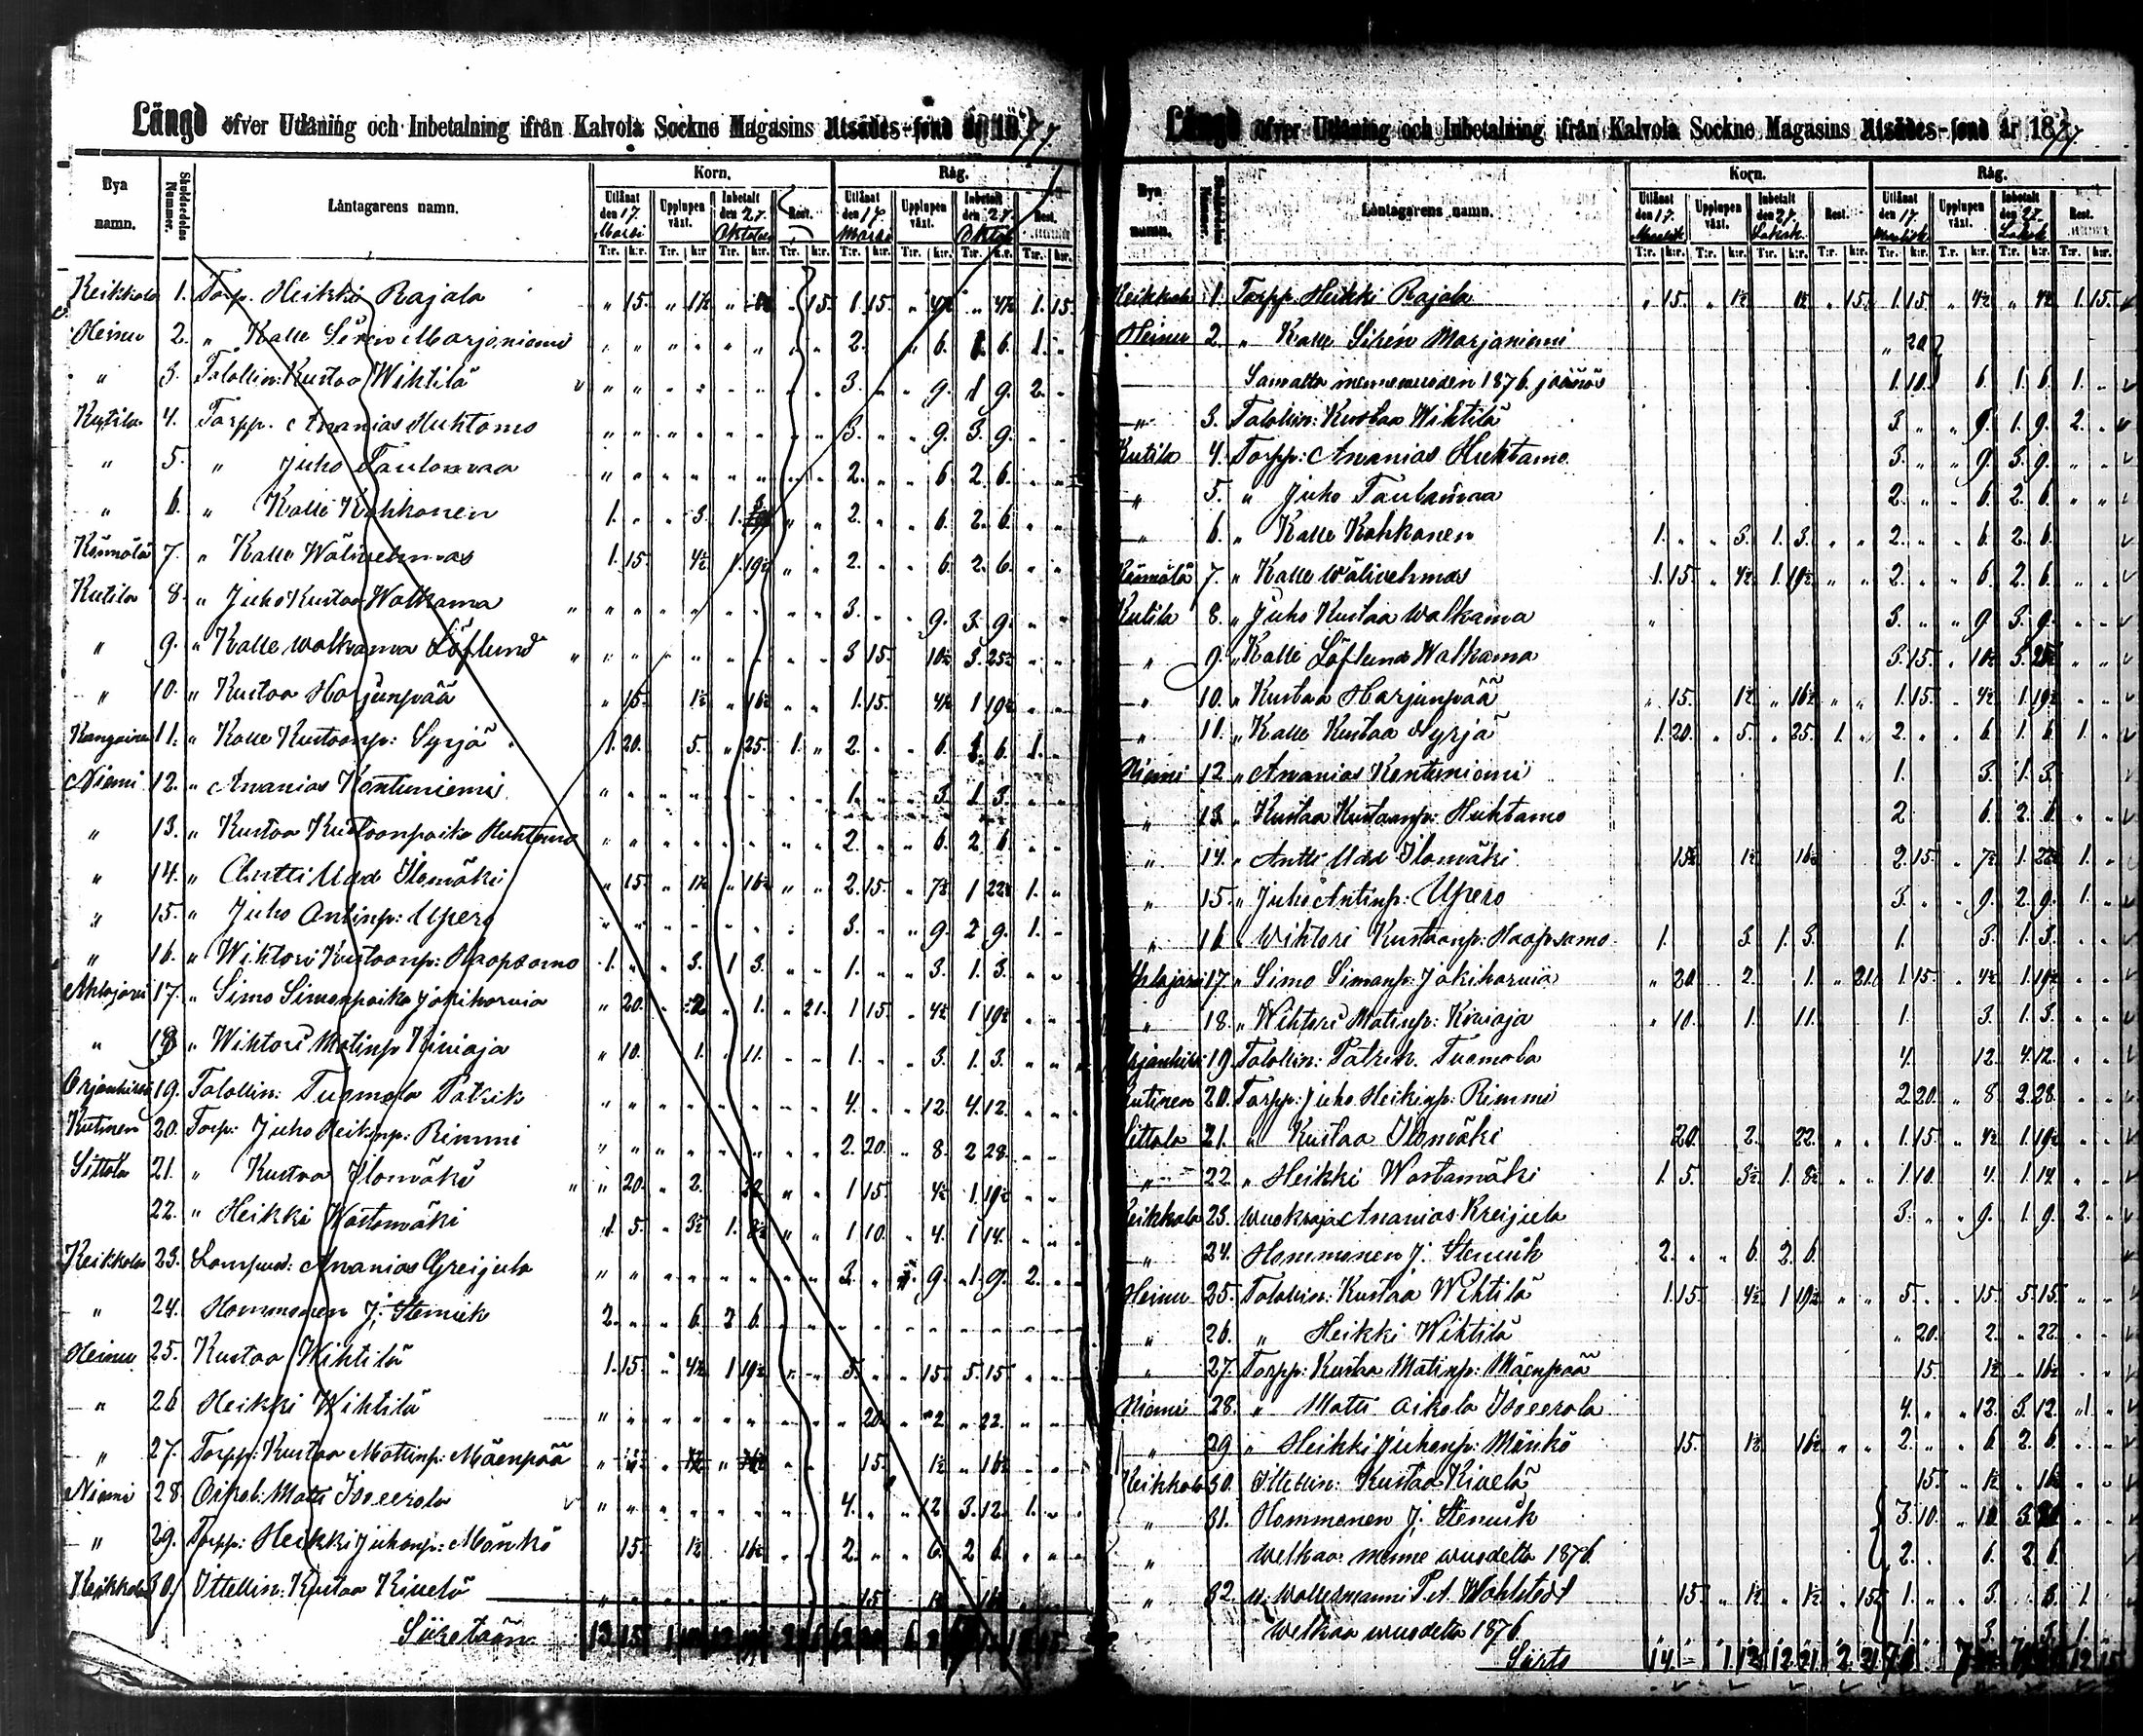 Längd öfver Utlåning och Inbetalning ifrån Kalvola Sockne Magasins Utsädes-fond år 1877.
Bya namn. Skuldsedelns Nummer. Låntagarens namn. Korn. Råg.
Utlånat den 17. Marsi Upplupen växt. Inbetalt den 27. Oktober Rest. Utlånat den 17. Marsi Upplupen växt. Inbetalt den 27. Oktob Rest.
T:r. k:r. T:r. k:r. T:r. k:r. T:r. k:r. T:r. k:r. T:r. k:r. T:r. k:r. T:r. k:r.
Keikkala 1. Torp. Heikki Rajala " 15. " 1½ " " 15. 1. 15. " 4½ " 4½ 1. 15.
Heinu 2. " Kalle Siren Marjoniemi " " " " " " " " 2. " 6. 1. 6. 1. "
" 3. Talollin: Kustaa Wihtilä " " " " " " " " 3. " " 9. 1 9. 2. "
Kutila 4. Torpp. Ananias Huhtamo " " " " " " " " 3. " " 9. 3. 9. " "
" 5. " Juho Taulamaa " " " " " " " " 2. " " 6. 2. 6. " "
" 6. " Kalle Kohkonen 1. " " 3. 1. " " 2. " " 6. 2. 6. " "
7. " Kalle Wäliwehmas 1. 15. 4½ 1. 19½ " " 2. " " 6. 2. 6. " "
Kutila 8. " Juho Kustaa Walkama " " " " " " " " 3. " " 9. 3. 9. " "
" 9. " Kalle Walkama Löflund " " " " " " " " 3 15. " 10½ 3. 25½ " "
" 10. " Kustaa Harjunpää " 15. " 1½ " 16½ " " 1. 15. " 4½ 1 19½ " "
11. " Kalle Kustaanp: Syrjä 1. 20. " 5. " 25. 1. " 2. " " 6. 1. 6. 1. "
Niemi 12. " Ananias Kontuniemi " " " " " " " " 1. " " 3. 1 3. " "
" 13. " Kustaa Kustaanpoika Huhtamo " " " " " " " " 2. " " 6. 2 6. " "
" 14. " Antti Uad Ilomäki " 15. " 1½ " 16½ " " 2. 15. " 7½ 1 22½ 1. "
" 15. " Juho Antinp: Upero " " " " " " " " 3. " " 9. 2 9. 1. "
" 16. " Wihtori Kustaanp: Haapsamo 1. " " 3. 1 3. " " 1. " " 3. 1. 3. " "
Ahlajärvi 17. " Simo Simonpoika Jokiharwia " 20. " 2. " 1. " 21. 1 15. " 4½ 1 19½ " "
" 18. " Wihtori Matinp: Kiviaja " 10. " 1. " 11. " " 1. " " 3. 1. 3. " "
19. Talollin: Tuomola Patrik " " " " " " " " 4. " " 12. 4. 12. " "
Kutinen 20. Torp: Juho Heikinp: Rimmi " " " " " " " " 2. 20. " 8. 2 28. " "
Sittola 21. " Kustaa Ilomäki " 20. " 2. " 22. " " 1 15. " 4½ 1. 19½ " "
22. " Heikki Wastamäki 1 5. " 3½ 1. 8½ " " 1 10. " 4. 1 14. " "
Keikkala 23. Ananias Greijula " " " " " " " " 3. " " 9. 1. 9. 2. "
" 24. Hommonen J; Stenvik 2. " " 6. 2 6. " "
Heinu 25. Kustaa Wihtilä 1. 15. " 4½ 1 19½ " " 5. " " 15. 5. 15. " "
" 26 Heikki Wihtilä " " " " " " " " " 20. " 2 " 22. " "
" 27. Torpp: Kustaa Mattinp: Mäenpää 15. " 1½ " 16½ " "
Niemi 28. Matts Isoeerola " " " " " " " " 4. " " 12 3. 12. 1. "
" 29. Torpp: Heikki Juhanp: Mönkö " 15. " 1½ " 16½ " " 2. " " 6. 2 6. " "
Keikkala 30. Ittellin: Kustaa Kivelä " " " " " " " " " 15 "
Siiretään 13. 15.
Längd öfver Utlåning och Inbetalning ifrån Kalvola Sockne Magasins Utsädes-fond år 1877.
Bya namn. Skuldsedelns Nummer. Låntagarens namn. Korn. Råg.
Utlånat den 17. Maalisk Upplupen växt. Inbetalt den 27. Lokak. Rest. Utlånat den 17. Maalisk Upplupen växt. Inbetalt den 27. Lokak. Rest.
T:r. k:r. T:r. k:r. T:r. k:r. T:r. k:r. T:r. k:r. T:r. k:r. T:r. k:r. T:r. k:r.
Keikkala 1. Torpp. Heikki Rajala " 15. " 1½ 1½ " 15. 1. 15. " 4½ " 4½ 1. 15.
Heinu 2. " Kalle Sirén Marjaniemi " 20
Samalta menne vuoden 1876. jäänös 1. 10. 6. 1. 6. 1. "
" 3. Talollin: Kustaa Wihtilä 3. " " 9. 1. 9. 2. "
Kutila 4. Torpp: Ananias Huhtamo 3. " " 9. 3. 9. " "
" 5. " Juho Taulamaa 2. " " 6. 2. 6. " "
" 6. " Kalle Kohkonen 1. " " 3. 1. 3. " " 2. " " 6. 2. 6. " "
7. " Kalle Wäliwehmas 1. 15. " 4½ 1. 19½ " " 2. " " 6. 2. 6. " "
Kutila 8. " Juho Kustaa Walkama " 3. " " 9. 3. 9. " "
" 9. " Kalle Löflund Walkama 3. 15. " 10½ 3. 25½ " "
" 10. " Kustaa Harjunpää " 15. 1½ " 16½ " " 1. 15. " 4½ 1. 19½ " "
" 11. " Kalle Kustaa Syrjä 1. 20. " 5. " 25. 1. " 2. " " 6 1. 6 1. "
Niemi 12 " Ananias Kontuniemi 1. 3. 1. 3.
" 13. " Kustaa Kustaanp: Huhtamo 2 6. 2 6. " "
" 14. " Antti Uad Ilomäki 15. 1½ 16½ 2. 15. " 7½ 1. 22½ 1. "
" 15. " Juho Antinp: Upero 3. " " 9. 2 9. 1. "
" 16. " Wihtori Kustaanp: Haapsamo 1. 3. 1. 3. 1. 3. 1. 3. " "
Ahlajärvi 17. " Simo Simonp: Jokiharwia " 20. 2. 1. " 21. 1. 15. " 4½ 1. 19½ " "
" 18. " Wihtori Matinp: Kiviaja " 10. 1. 11. 1. 3. 1. 3. " "
19. Talollin: Patrik Tuomola 4. 12. 4. 12. " "
Kutinen 20. Torpp: Juho Heikinp: Rimmi 2 20. " 8 2 28. " "
Sittola 21. " Kustaa Ilomäki 20. 2. 22. " " 1. 15. " 4½ 1. 19½ " "
" 22. " Heikki Wastamäki 1. 5. 3½ 1. 8½ " " 1. 10. 4. 1. 14. " "
Keikkala 23. Wuokraaja Ananias Kreijula 3. " " 9. 1. 9. 2. "
" 24. Hommonen J; Stenvik 2. " " 6. 2 6.
Heinu 25. Talollin: Kustaa Wihtilä 1. 15. 4½ 1 19½ " " 5. " " 15. 5. 15. " "
" 26. " Heikki Wihtilä " 20. 2. " 22. " "
" 27. Torpp: Kustaa Matinp: Mäenpää 15. 1½ " 16½ " "
Niemi 28. " Matts Isoeerola 4. " " 12. 3. 12. 1. "
" 29 " Heikki Juhanp: Mönkö 15. 1½ 16½ " " 2. " " 6 2. 6. " "
Keikkala 30. Ittellin: Kustaa Kivelä 15. " 1½ " 16½ " "
" 31. Hommonen J; Stenvik 3. 10. " 10. 3. 20. " "
" Welkaa menne vuodelta 1876. 2. 6. 2. 6.
" 32. P. A. Wahlstedt 15. " 1½ " 1½ " 15. 1. " 3. 3. 1
Welkaa vuodelta 1876. 1. 3. 3. 1.
Siirto 14. - 1. 12 12. 21. 2. 21.